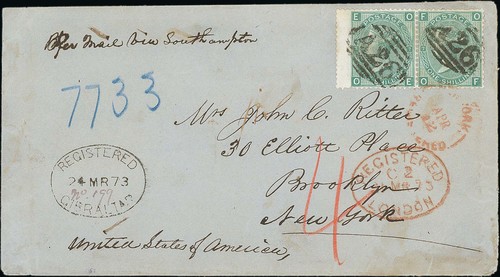 Per Mail via Southampton
7733
O E
POSTAGE
ONE SHILLING
E O
A26
O F
POSTAGE
ONE SHILLING
F O
A26
Mrs John C. Ritter
30 Elliott Place
Brooklyn
New York
United States of America,
REGISTERED
24 MR 73
GIBRALTAR
4
REGISTERED
C 2
MR 73
LONDON
APR